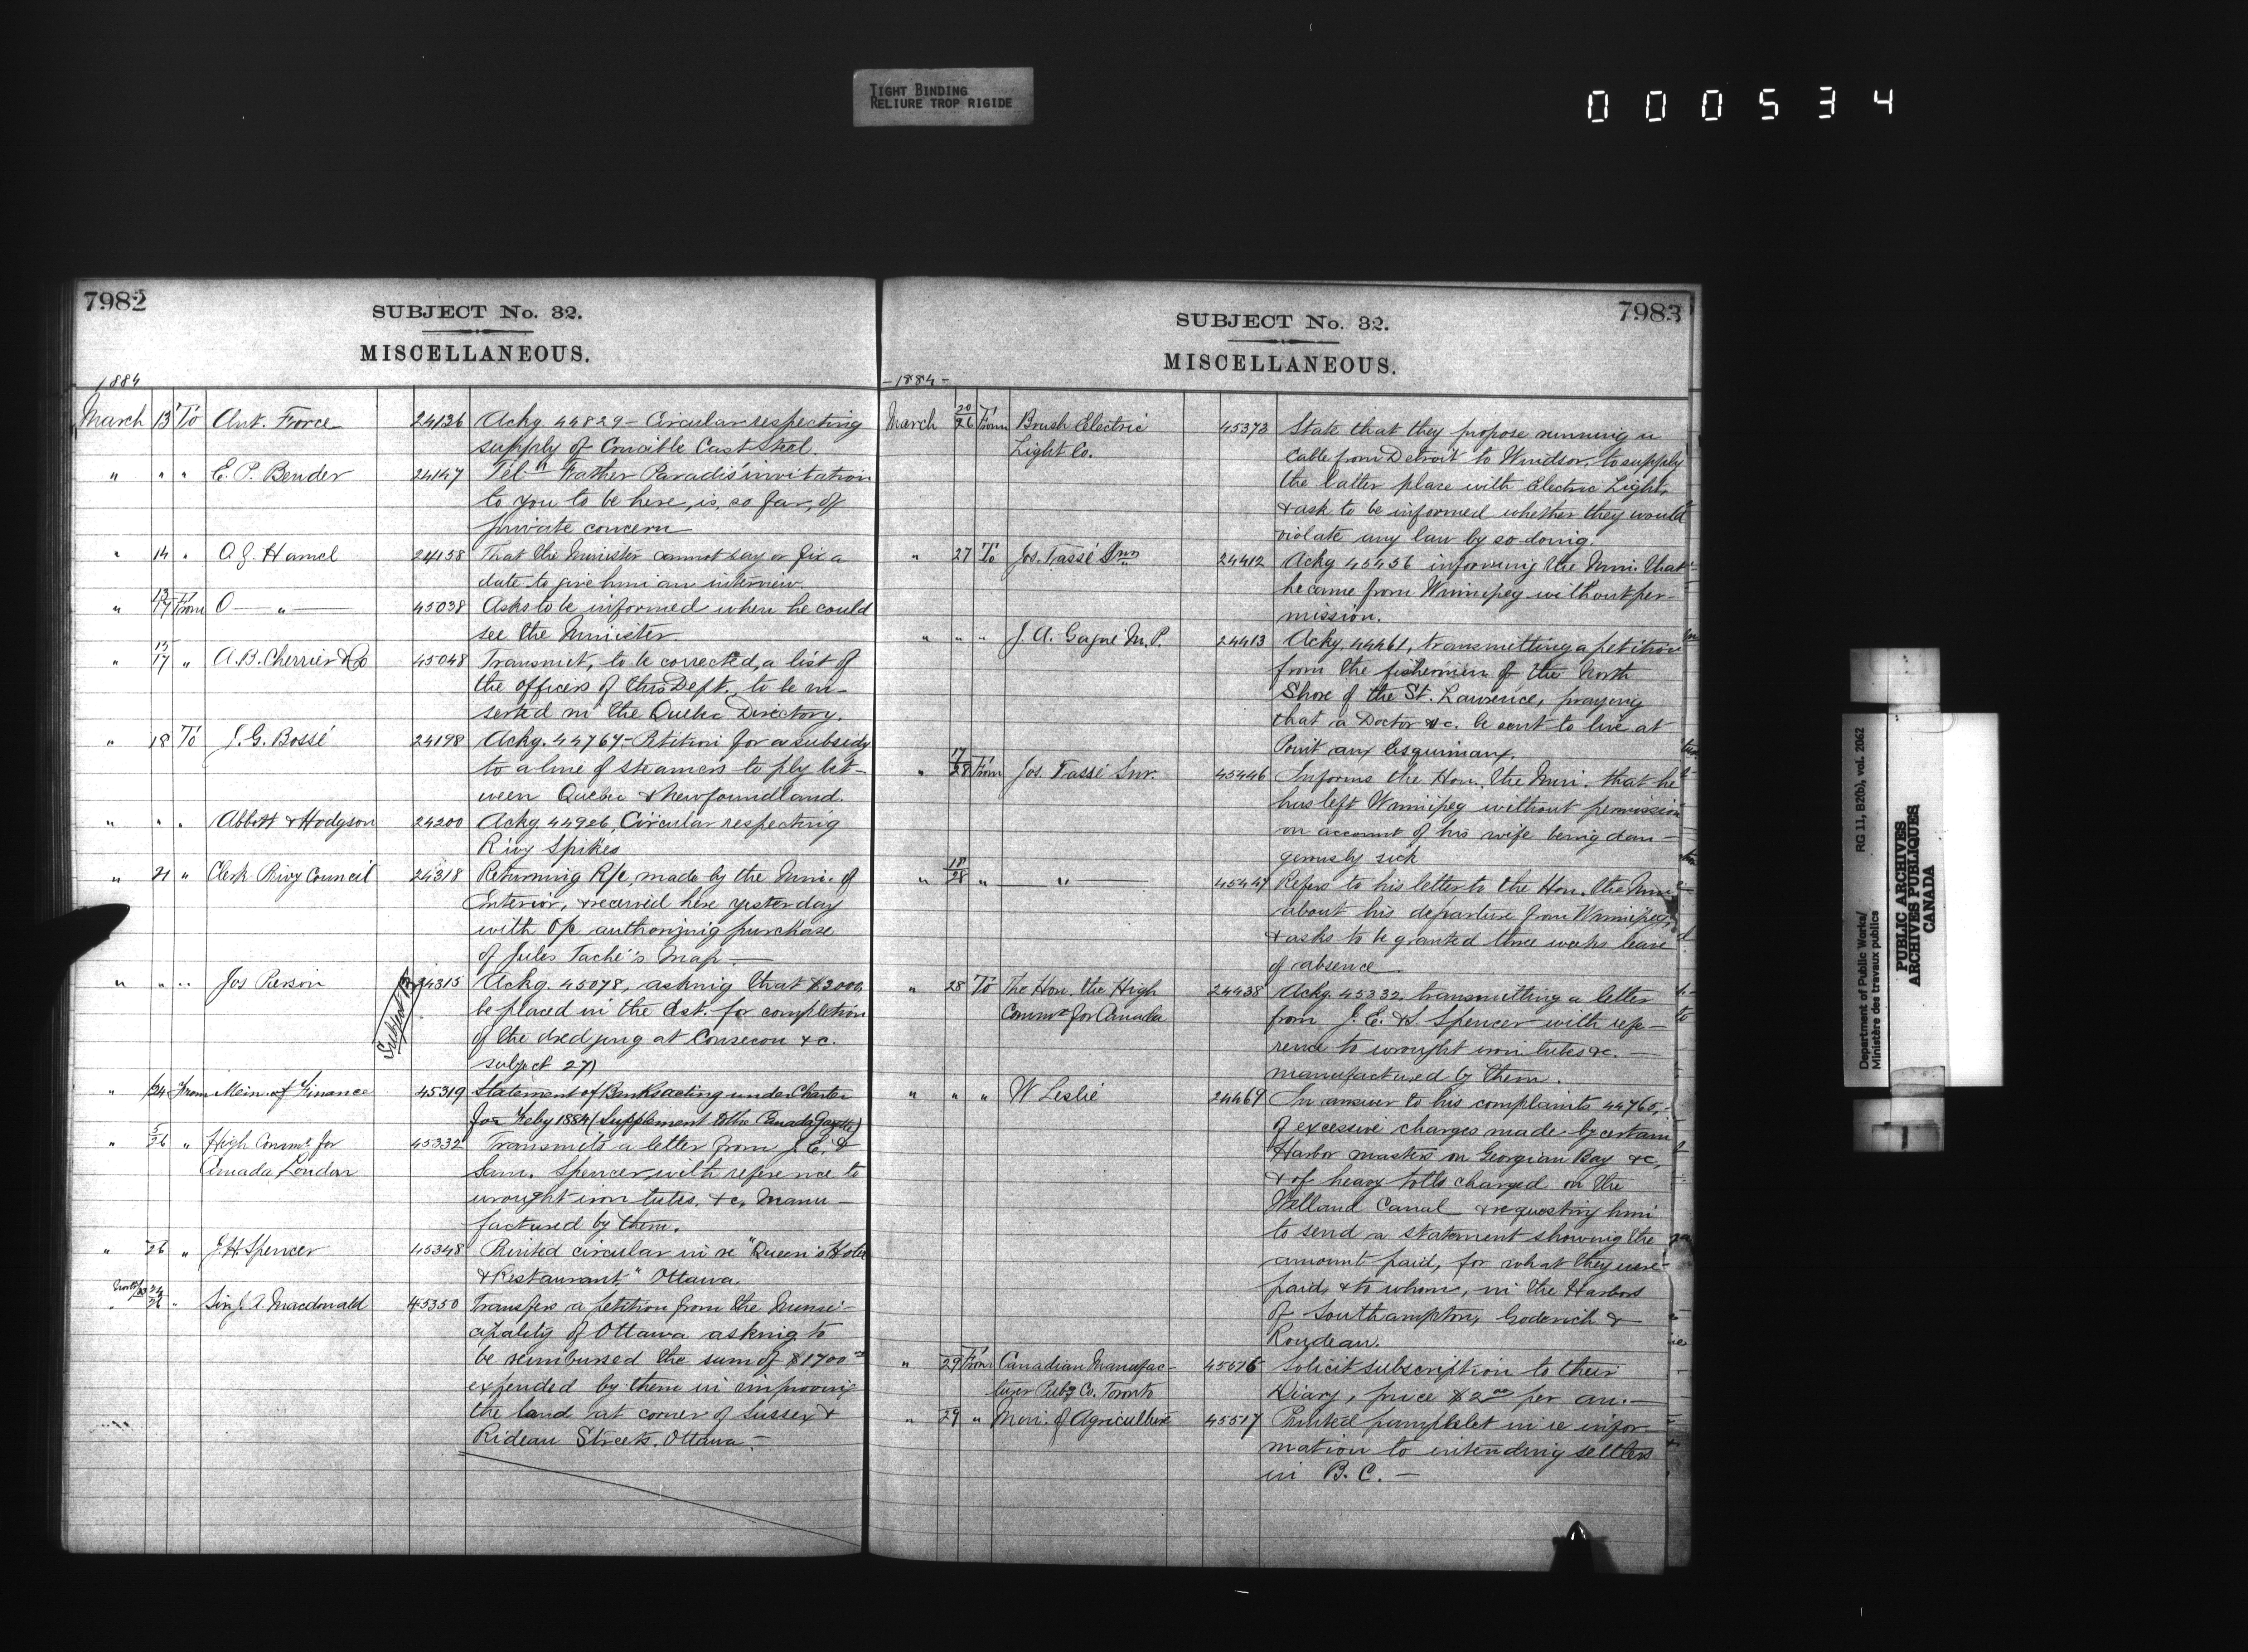 TIGHT BINDING
RELIURE TROP RIGIDE
000534
7982
SUBJECT No. 32.
MISCELLANEOUS.
1884
March 13 To Ant. Force 24136 Ackg 44829 - Circular respecting
supply of Crucible Cast Steel.
" " " E. P. Bender 24147 Tel Father Paradis' invitation
to you to be here, is, so far, of
private concern
" 14 " O. J. Hamel 24158 That the Minister cannot say or fix a
date to give him an interview.
" 13/17 From O — " — 45038 Asks to be informed when he could
see the Minister
" 15/17 " A. B. Cherrier & Co 45048 Transmit, to be corrected, a list of
the officers of this Dept. to be in-
serted in the Quebec Directory.
" 18 To J. G. Bossé 24198 Ackg. 44767 - Petition for a subsidy
to a line of steamers to ply bet-
ween Quebec & Newfoundland.
" " " Abbott & Hodgson 24200 Ackg. 44926, Circular respecting
Rivy Spikes
" 21 " Clerk Privy Council 24318 Returning R/c, made by the Mini. of
Interior, & received here yesterday
with O/c authorizing purchase
of Jules Taché's Map. —
" " " Jos Pierson 24315 Ackg. 45078, asking that $2000
be placed in the Est. for completion
of the dredging at Consecon &c.
subject 27)
" 24 From Min. of Finance 45319 Statement of Banks acting under Charter
for Feby 1884 (Supplement to the Canada Gazette)
" 5/26 " High Commr. for 45332 Transmits a letter from J. E. &
Canada London Sam. Spencer, with reference to
wrought iron tubes, &c, Manu-
factured by them.
" 26 " J. H. Spencer 45348 Printed circular in re "Queen's Hotel
& Restaurant," Ottawa.
" 24/26 " Sir J. A. Macdonald 45350 Transfers a petition from the Munici-
cipality of Ottawa asking to
be reimbursed the sum of $1700
expended by them in improving
the land at corner of Sussex &
Rideau Streets, Ottawa.-
7983
SUBJECT No. 32.
MISCELLANEOUS.
-1884-
March 20/26 From Brush Electric 45373 State that they propose running a
Light Co. Cable from Detroit to Windsor, to supply
the latter place with Electric Light,
& ask to be informed whether they would
violate any law by so doing.
" 27 To Jos. Tassé Snr 24412 Ackg 45456 informing the Mini. that
he came from Winnipeg without per-
mission.
" " " J. A. Gagné M.P. 24413 Ackg. 44461, transmitting a petition
from the fishermen of the North
Shore of the St. Lawrence, praying
that a Doctor &c. be sent to live at
Point aux Esquimaux.
" 17/28 From Jos. Tassé Snr. 45446 Informs the Hon. the Mini. that he
has left Winnipeg without permission
on account of his wife being dan-
gerously sick
" 18/28 " — " — 45447 Refers to his letter to the Hon. the Mini
about his departure from Winnipeg,
& asks to be granted three weeks leave
of absence
" 28 To The Hon. the High 24438 Ackg. 45332, transmitting a letter
Commr for Canada from J. E. & S. Spencer with refe-
rence to wrought iron tubes &c. —
manufactured by them.
" " " W Leslie 24469 In answer to his complaints 44765,
of excessive charges made by certain
Harbor masters on Georgian Bay &c,
& of heavy tolls charged on the
Welland Canal & requesting him
to send a statement showing the
amount paid, for what they were
paid, & to whom, in the Harbors
of Southampton, Goderich &
Rondeau.
" 29 From Canadian Manufac- 45516 Solicit subscription to their
turer Pubg Co. Toronto Diary, price $2 per an. —
" 29 " Mini. of Agriculture 45517 Printed pamphlet in re infor-
mation to intending settlers
in B. C. —
Department of Public Works/ RG 11, B2(b), vol. 2062
Ministère des travaux publics
PUBLIC ARCHIVES
ARCHIVES PUBLIQUES
CANADA